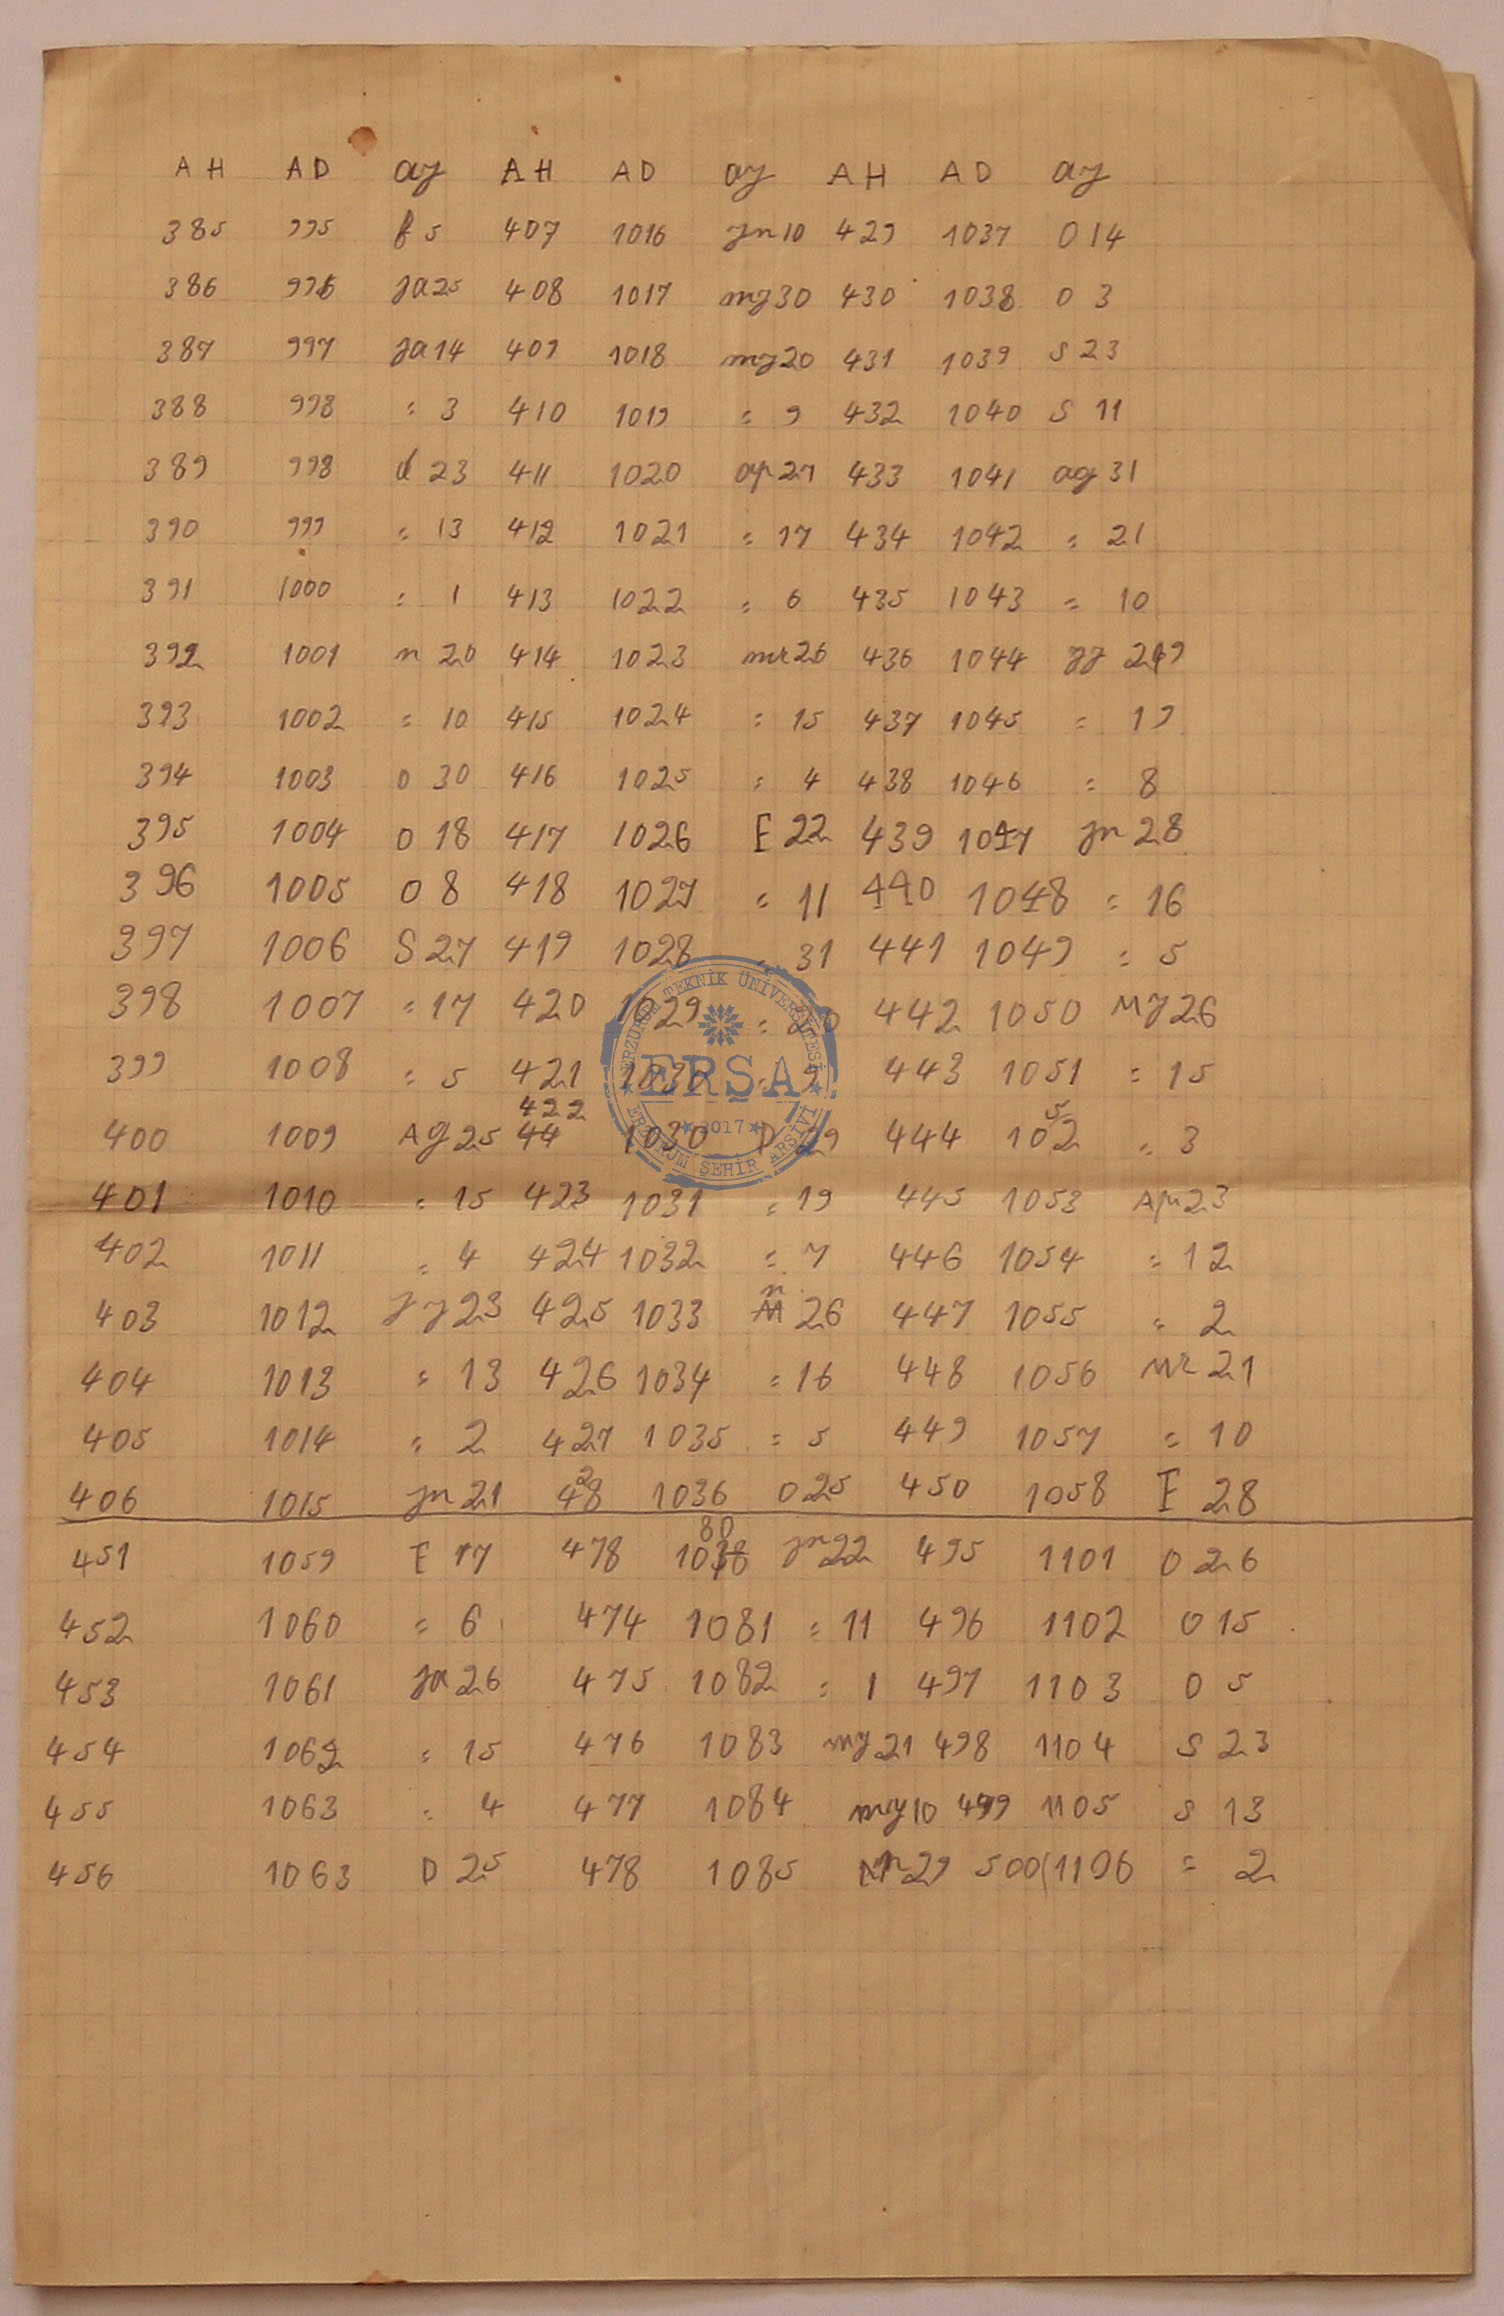 AH AD ay AH AD ay AH AD ay
385 995 f 5 407 1016 jn 10 429 1037 O 14
386 996 ja 25 408 1017 my 30 430 1038 O 3
387 997 ja 14 409 1018 my 20 431 1039 S 23
388 998 = 3 410 1019 = 9 432 1040 S 11
389 998 d 23 411 1020 ap 27 433 1041 ag 31
390 999 = 13 412 1021 = 17 434 1042 = 21
391 1000 = 1 413 1022 = 6 435 1043 = 10
392 1001 n 20 414 1023 mr 26 436 1044 jy 29
393 1002 = 10 415 1024 = 15 437 1045 = 19
394 1003 O 30 416 1025 = 4 438 1046 = 8
395 1004 O 18 417 1026 F 22 439 1047 jn 28
396 1005 O 8 418 1027 = 11 440 1048 = 16
397 1006 S 27 419 1028 = 31 441 1049 = 5
398 1007 = 17 420 1029 = 20 442 1050 My 26
399 1008 = 5 421 1030 = 9 443 1051 = 15
400 1009 Ag 25 422 1030 D 29 444 1052 = 3
401 1010 = 15 423 1031 = 19 445 1053 Ap 23
402 1011 = 4 424 1032 = 7 446 1054 = 12
403 1012 Jy 23 425 1033 n 26 447 1055 = 2
404 1013 = 13 426 1034 = 16 448 1056 Mr 21
405 1014 = 2 427 1035 = 5 449 1057 = 10
406 1015 jn 21 428 1036 O 25 450 1058 F 28
451 1059 F 17 478 1080 jn 22 495 1101 O 26
452 1060 = 6 474 1081 = 11 496 1102 O 15
453 1061 ja 26 475 1082 = 1 497 1103 O 5
454 1062 = 15 476 1083 my 21 498 1104 S 23
455 1063 = 4 477 1084 my 10 499 1105 S 13
456 1063 D 25 478 1085 29 500 (1106 = 2
ERZURUM TEKNİK ÜNİVERSİTESİ
ERSA
2017
ERZURUM ŞEHİR ARŞİVİ